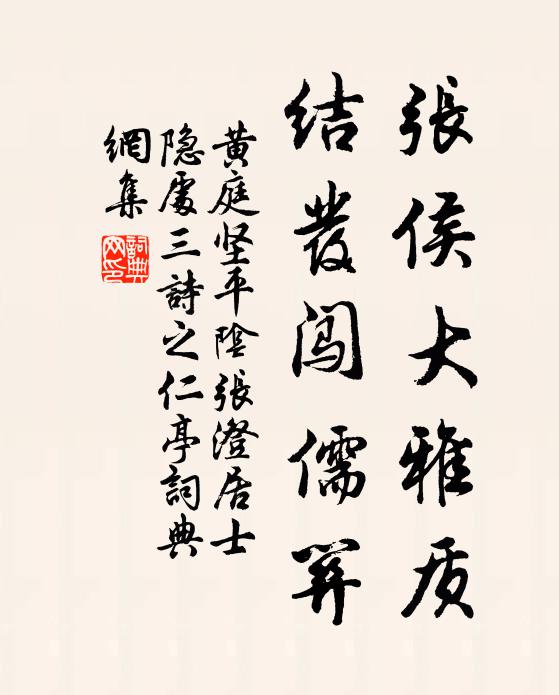 張侯大雅质
結發闯儒關
黄庭坚平陰張澄居士
隐處三詩之仁亭詞典
網集
詞典
网印